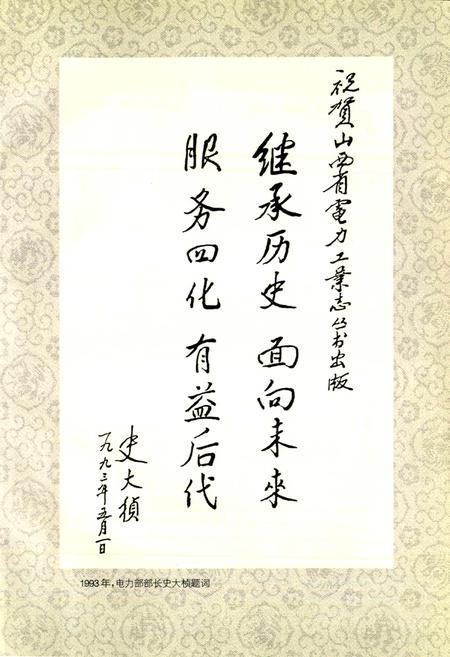 祝贺山西省電力工業志丛书出版
继承历史 面向未来
服务四化 有益后代
史大楨
一九九三年五月一日
1993年，电力部部长史大桢题词